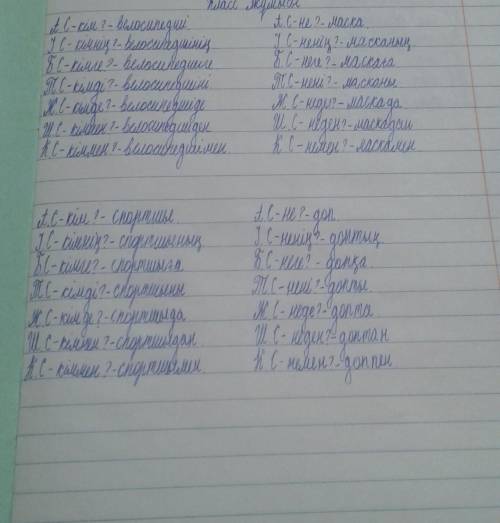 Класс жұмысы
А.С-кім?-велосипедші
І.С-кімнің?-велосипедшінің
Б.С-кімге?-велосипедшіге
Т.С-кімді?-велосипедшіні
Ж.С-кімде?-велосипедшіде
Ш.С-кімнен?-велосипедшіден
К.С-кіммен?-велосипедшімен
А.С-не?-маска
І.С-ненің?-масканың
Б.С-неге?-маскаға
Т.С-нені?-масканы
Ж.С-неде?-маскада
Ш.С-неден?-маскадан
К.С-немен?-маскамен
А.С-кім?-спортшы
І.С-кімнің?-спортшының
Б.С-кімге?-спортшыға
Т.С-кімді?-спортшыны
Ж.С-кімде?-спортшыда
Ш.С-кімнен?-спортшыдан
К.С-кіммен?-спортшымен
А.С-не?-доп
І.С-ненің?-доптың
Б.С-неге?-допқа
Т.С-нені?-допты
Ж.С-неде?-допта
Ш.С-неден?-доптан
К.С-немен?-доппен